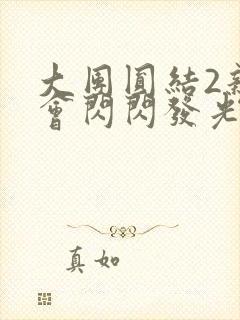 大團圓結2新
會閃閃發光
真如